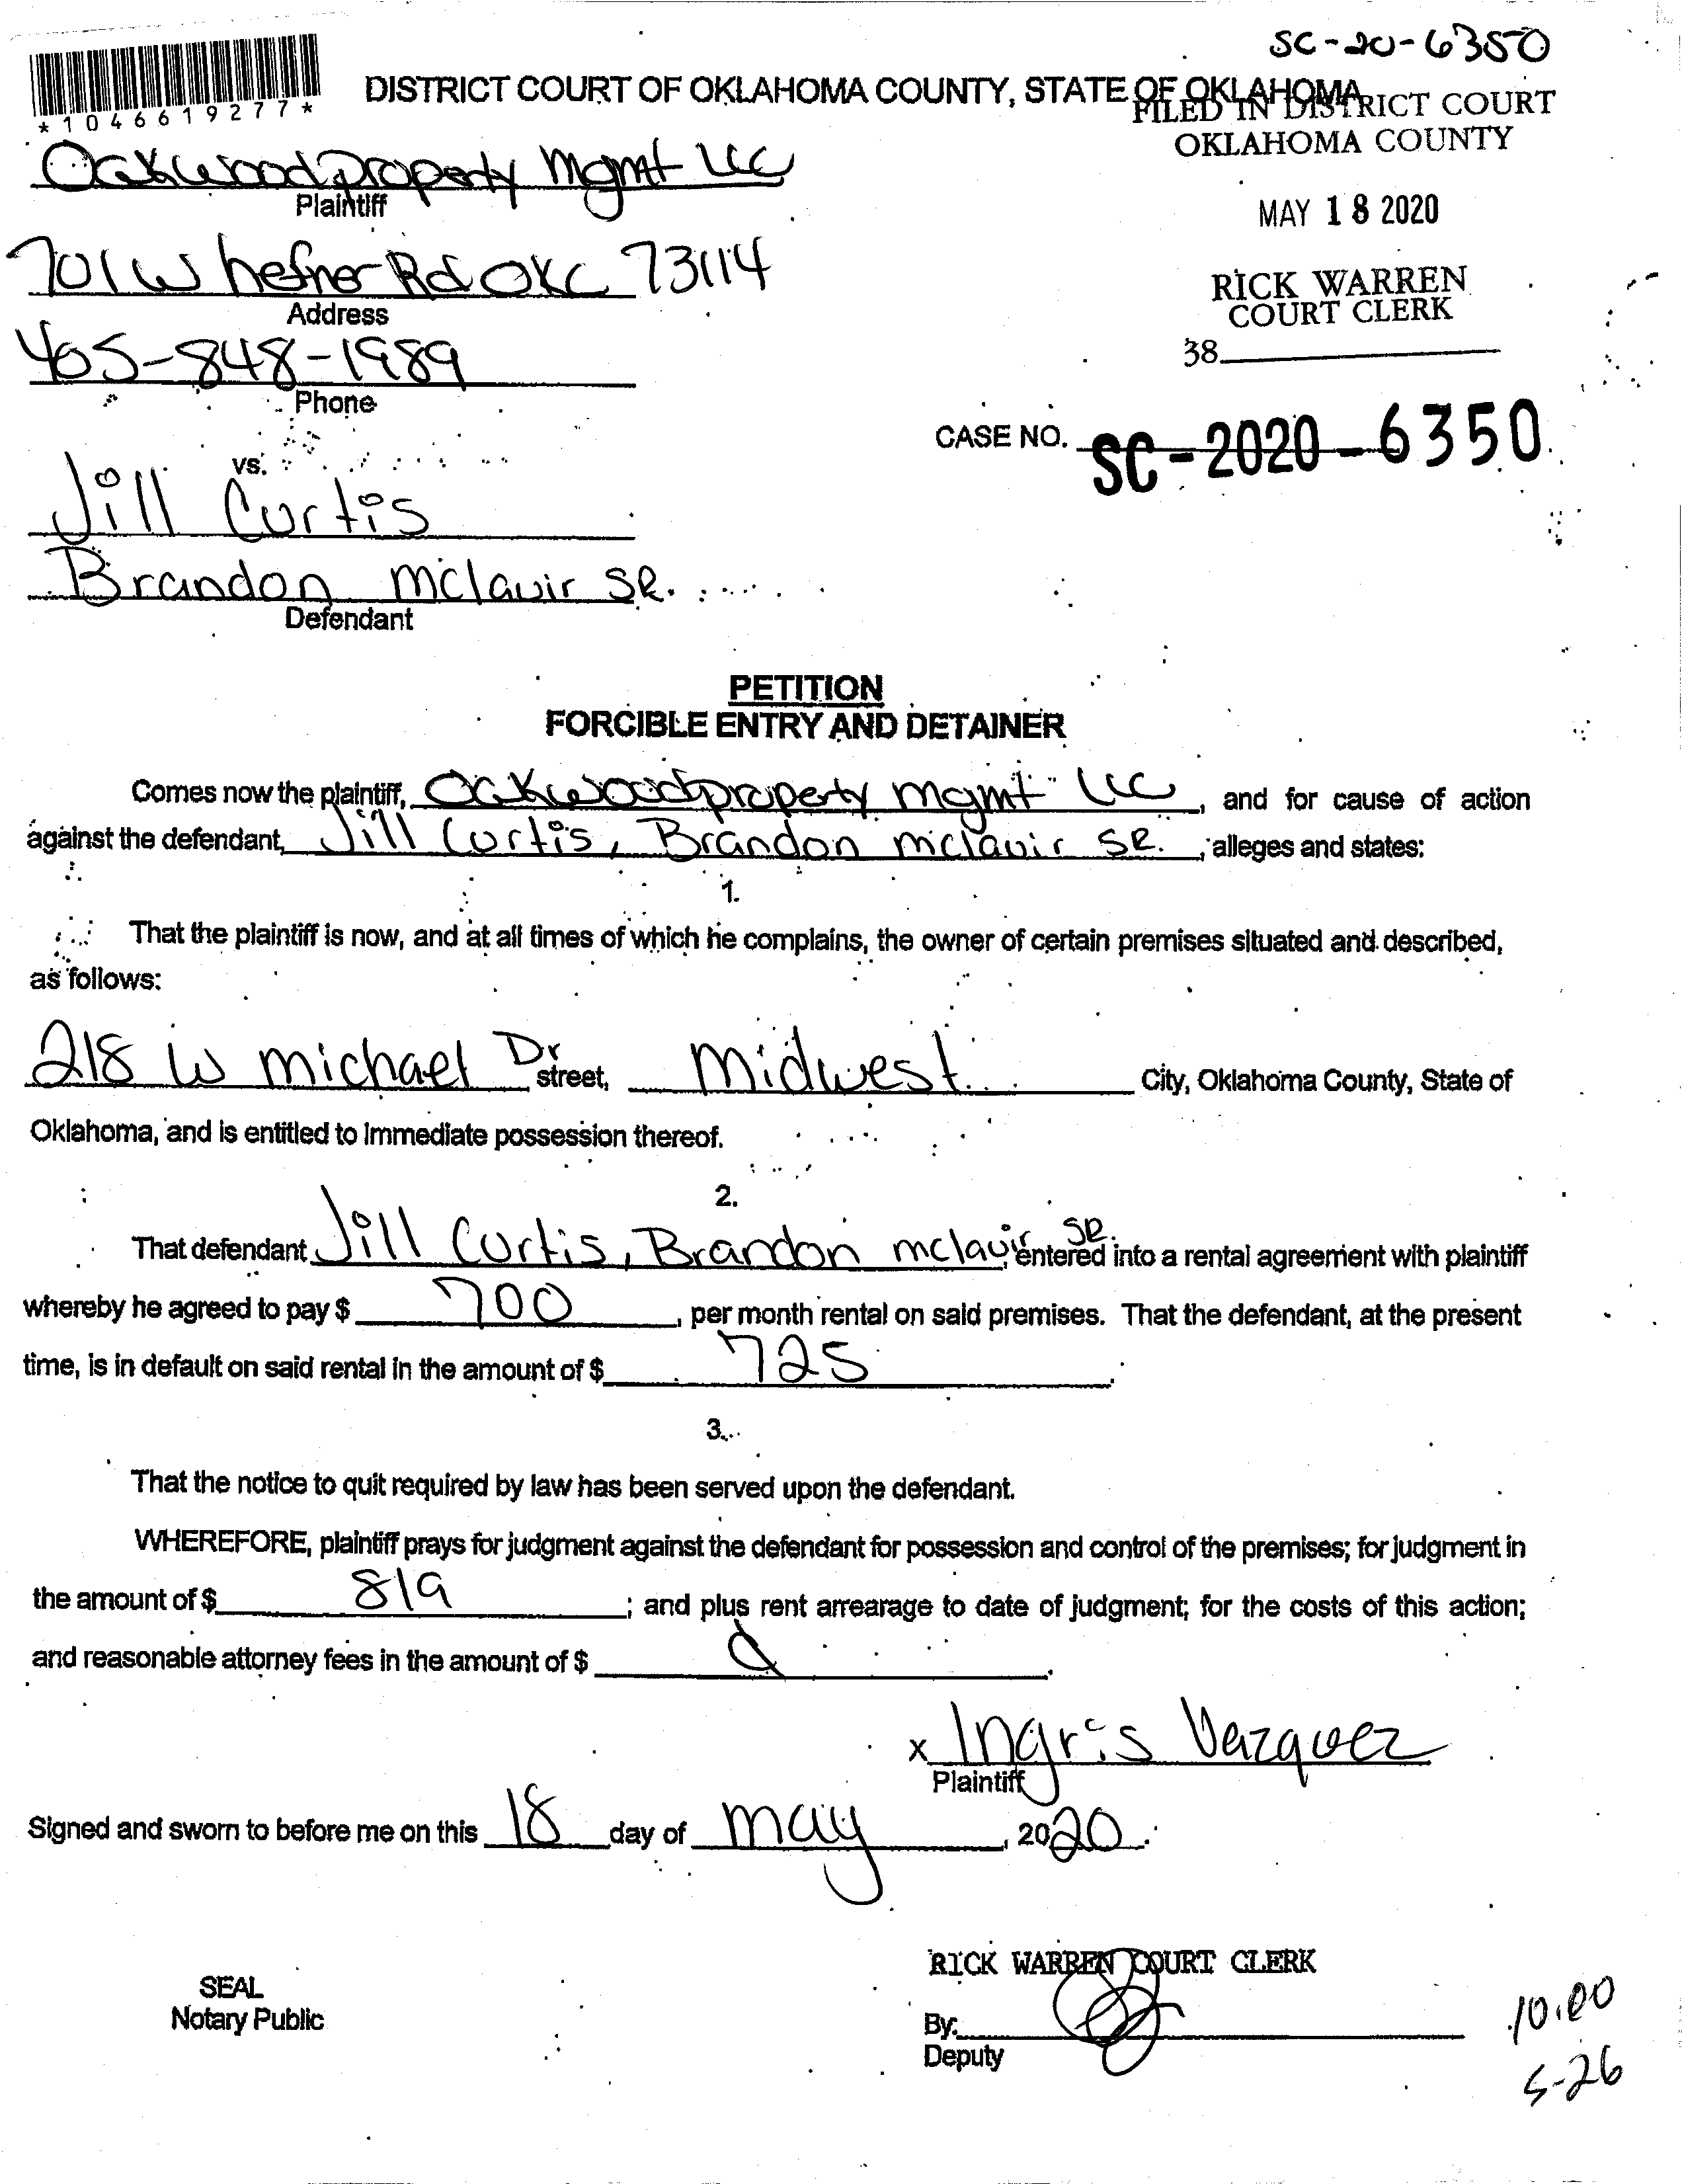 SC-20-6350
*1046619277*
DISTRICT COURT OF OKLAHOMA COUNTY, STATE OF OKLAHOMA
FILED IN DISTRICT COURT
OKLAHOMA COUNTY
Oakwood property Mgmt LLC
Plaintiff
MAY 18 2020
701 W hefner Rd OKC 73114
Address
RICK WARREN
COURT CLERK
405-848-1989
Phone
38
CASE NO. SC-2020-6350
vs.
Jill Curtis
Brandon mclavir SR.
Defendant
PETITION
FORCIBLE ENTRY AND DETAINER
Comes now the plaintiff, Oakwood property mgmt LLC, and for cause of action
against the defendant, Jill Curtis, Brandon mclavir SR., alleges and states:
1.
That the plaintiff is now, and at all times of which he complains, the owner of certain premises situated and described,
as follows:
218 W michael Dr street, Midwest City, Oklahoma County, State of
Oklahoma, and is entitled to immediate possession thereof.
2.
That defendant Jill Curtis, Brandon mclavir SR., entered into a rental agreement with plaintiff
whereby he agreed to pay $ 700, per month rental on said premises. That the defendant, at the present
time, is in default on said rental in the amount of $ 725.
3.
That the notice to quit required by law has been served upon the defendant.
WHEREFORE, plaintiff prays for judgment against the defendant for possession and control of the premises; for judgment in
the amount of $ 819; and plus rent arrearage to date of judgment; for the costs of this action;
and reasonable attorney fees in the amount of $
x Ingris Vazquez
Plaintiff
Signed and sworn to before me on this 18 day of may, 2020.
RICK WARREN COURT CLERK
SEAL
Notary Public
By:
Deputy
10:00
5-26